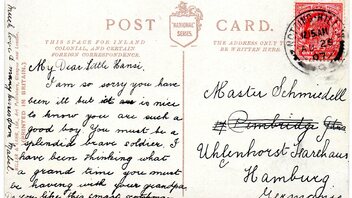 POST CARD.
NATIONAL SERIES
THIS SPACE FOR INLAND
COLONIAL, AND CERTAIN
FOREIGN CORRESPONDENCE.
THE ADDRESS ONLY TO BE
My Dear little Hansi.
I am so sorry you have
been ill but it is nice
to know you are such a
good boy. You must be a
splendid brave soldier. I
have been thinking what
a grand time you must
be having with your grandpa
you like this
much love & many kisses from Mabel.
PRINTED IN BRITAIN.
NOTTING HILL
AU 26
Master Schmiedell
Pembridge
Uhlenhorst
Hamburg
Germany